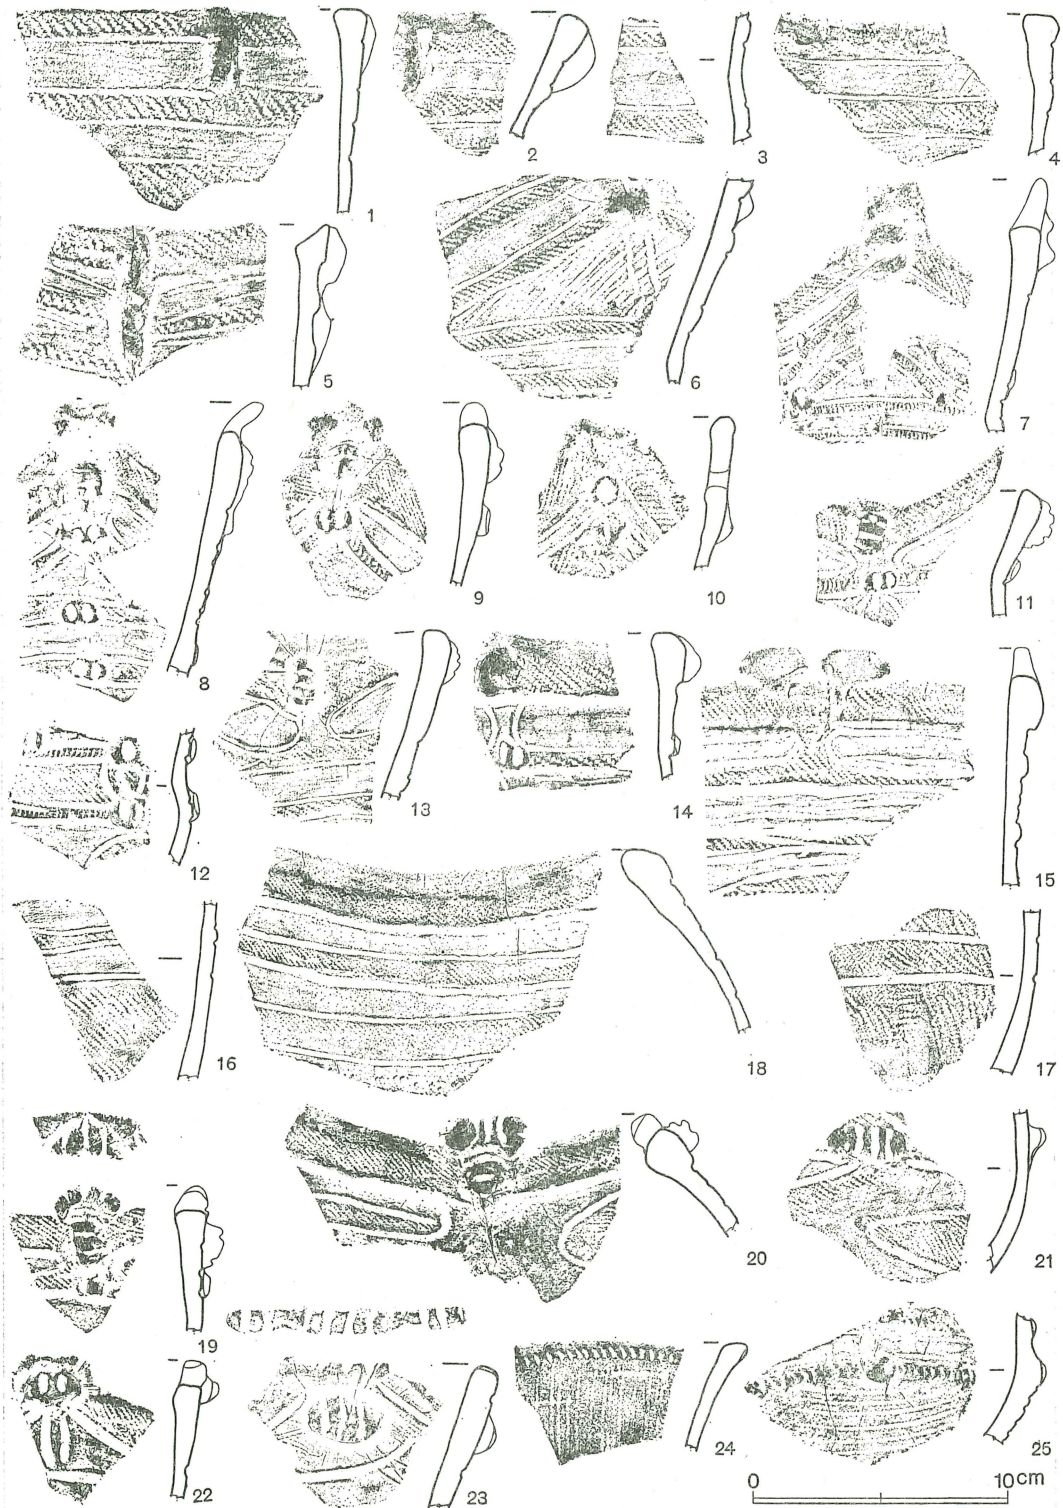 1 2 3 4
5 6 7
8 9 10 11
12 13 14 15
16 18 17
19 20 21
22 23 24 25
0 10cm